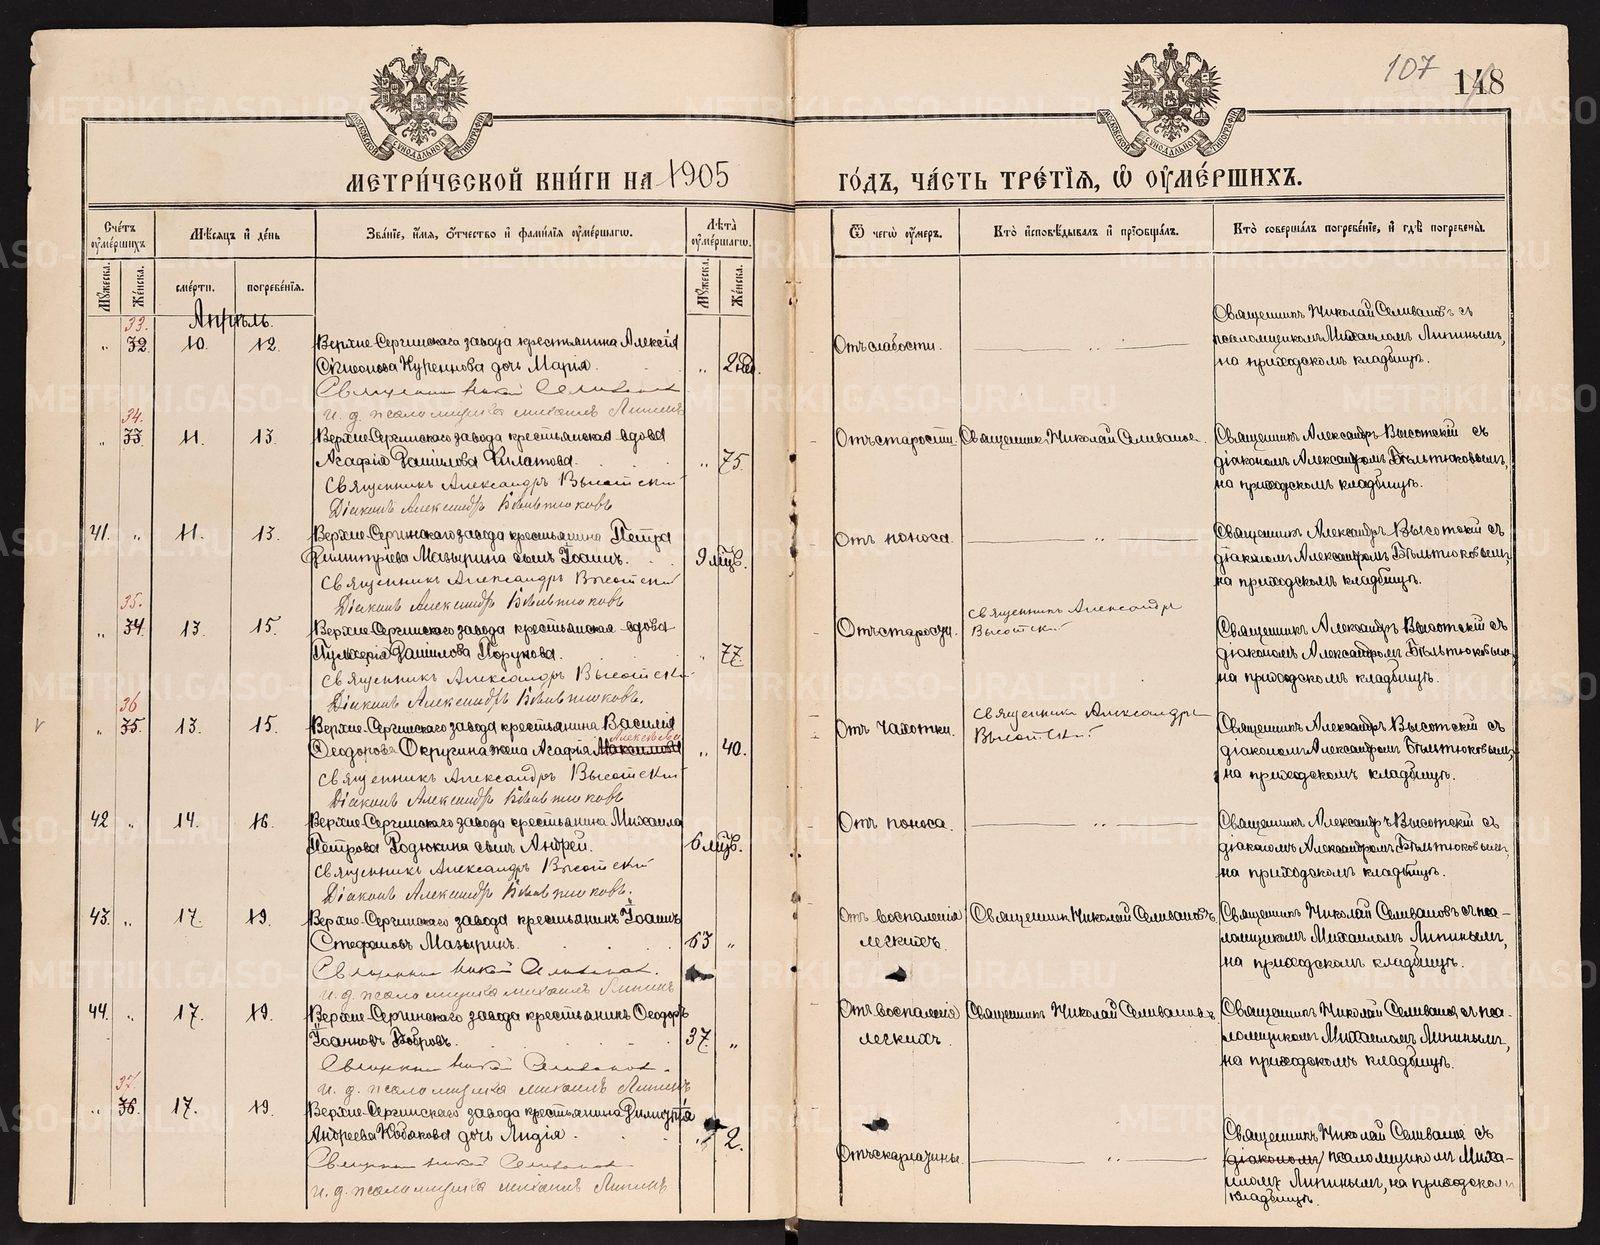 107 148
МЕТРИЧЕСКОЙ КНИГИ НА 1905 ГОДЪ, ЧАСТЬ ТРЕТІЯ, Ѿ ОУМЕРШИХЪ.
МОСКОВСКОЙ СѴНОДАЛЬНОЙ ТИПОГРАФІИ
МОСКОВСКОЙ СѴНОДАЛЬНОЙ ТИПОГРАФІИ
Счетъ оумершихъ
Мѣсяцъ и день
Званіе, имя, отчество и фамилія оумершагѡ.
Лѣта оумершагѡ.
Ѿ чегѡ оумеръ.
Кто исповѣдывалъ и пріобщалъ.
Кто совершалъ погребеніе, и гдѣ погребены.
Мужеска.
Женска.
смерти.
погребенія.
Мужеска.
Женска.
Апрѣль.
33.
„ 32 10. 12. Верхне-Сергинскаго завода крестьянина Алексія
Куреннова дочь Марія. „ 2 нед.
Отъ слабости. „
Священникъ Николай Селивановъ съ
псаломщикомъ Михаиломъ Липинымъ,
на приходскомъ кладбищѣ.
Священникъ Никол Селиванов
и. д. псаломщика Михаилъ Липинъ
34.
„ 33. 11. 13. Верхне-Сергинскаго завода крестьянская вдова
Агафія Данилова Филатова. „ 75.
Отъ старости. Священникъ Николай Селиванов.
Священникъ Александръ Высотскій съ
діакономъ Александромъ Бѣльтюковымъ,
на приходскомъ кладбищѣ.
Священникъ Александръ Высотский
Діаконъ Александръ Бѣльтюковъ
41. „ 11. 13. Верхне-Сергинскаго завода крестьянина Петра
Димитріева Мазырина сынъ Іоаннъ. 9 мѣс.
Отъ поноса. „
Священникъ Александръ Высотскій съ
діакономъ Александромъ Бѣльтюковымъ,
на приходскомъ кладбищѣ.
Священникъ Александръ Высотский
Діаконъ Александръ Бѣльтюковъ
35.
„ 34. 13. 15. Верхне-Сергинскаго завода крестьянская вдова
Пульхерія Данилова Порунова. „ 77.
Отъ старости. Священникъ Александръ
Высотский
Священникъ Александръ Высотскій съ
діакономъ Александромъ Бѣльтюковымъ,
на приходскомъ кладбищѣ.
Священникъ Александръ Высотский
Діаконъ Александръ Бѣльтюковъ.
36
„ 35. 13. 15. Верхне-Сергинскаго завода крестьянина Василія
Алексѣева
Ѳеодорова Округина жена Агафія „ 40.
Отъ чахотки. Священникъ Александръ
Высотский
Священникъ Александръ Высотскій съ
діакономъ Александромъ Бѣльтюковымъ,
на приходскомъ кладбищѣ.
Священникъ Александръ Высотский
Діаконъ Александръ Бѣльтюковъ
42 „ 14. 16. Верхне-Сергинскаго завода крестьянина Михаила
Петрова Родюкина сынъ Андрей. 6 мѣс.
Отъ поноса. „
Священникъ Александръ Высотскій съ
діакономъ Александромъ Бѣльтюковымъ,
на приходскомъ кладбищѣ.
Священникъ Александръ Высотский
Діаконъ Александръ Бѣльтюковъ.
43. „ 17. 19. Верхне-Сергинскаго завода крестьянинъ Іоаннъ
Стефановъ Мазыринъ. 63 „
Отъ воспаленія
легкихъ.
Священникъ Николай Селивановъ
Священникъ Николай Селивановъ съ пса-
ломщикомъ Михаиломъ Липинымъ,
на приходскомъ кладбищѣ.
Священник Никол Селиванов.
и. д. псаломщика Михаилъ Липинъ
44. „ 17. 19. Верхне-Сергинскаго завода крестьянинъ Ѳеодоръ
Іоанновъ Бобровъ. 37. „
Отъ воспаленія
легкихъ.
Священникъ Николай Селивановъ
Священникъ Николай Селивановъ съ пса-
ломщикомъ Михаиломъ Липинымъ,
на приходскомъ кладбищѣ.
Священник Никол Селиванов.
и. д. псаломщика Михаилъ Липинъ
37.
„ 36. 17. 19. Верхне-Сергинскаго завода крестьянина Димитрія
Андреева Кобякова дочь Лидія. „ 2.
Отъ скарлатины. „
Священникъ Николай Селивановъ съ
(діакономъ) псаломщикомъ Миха-
иломъ Липинымъ, на приходском
кладбищѣ.
Священник Никол Селиванов
и. д. псаломщика Михаилъ Липинъ
METRIKI.GASO-URAL.RU